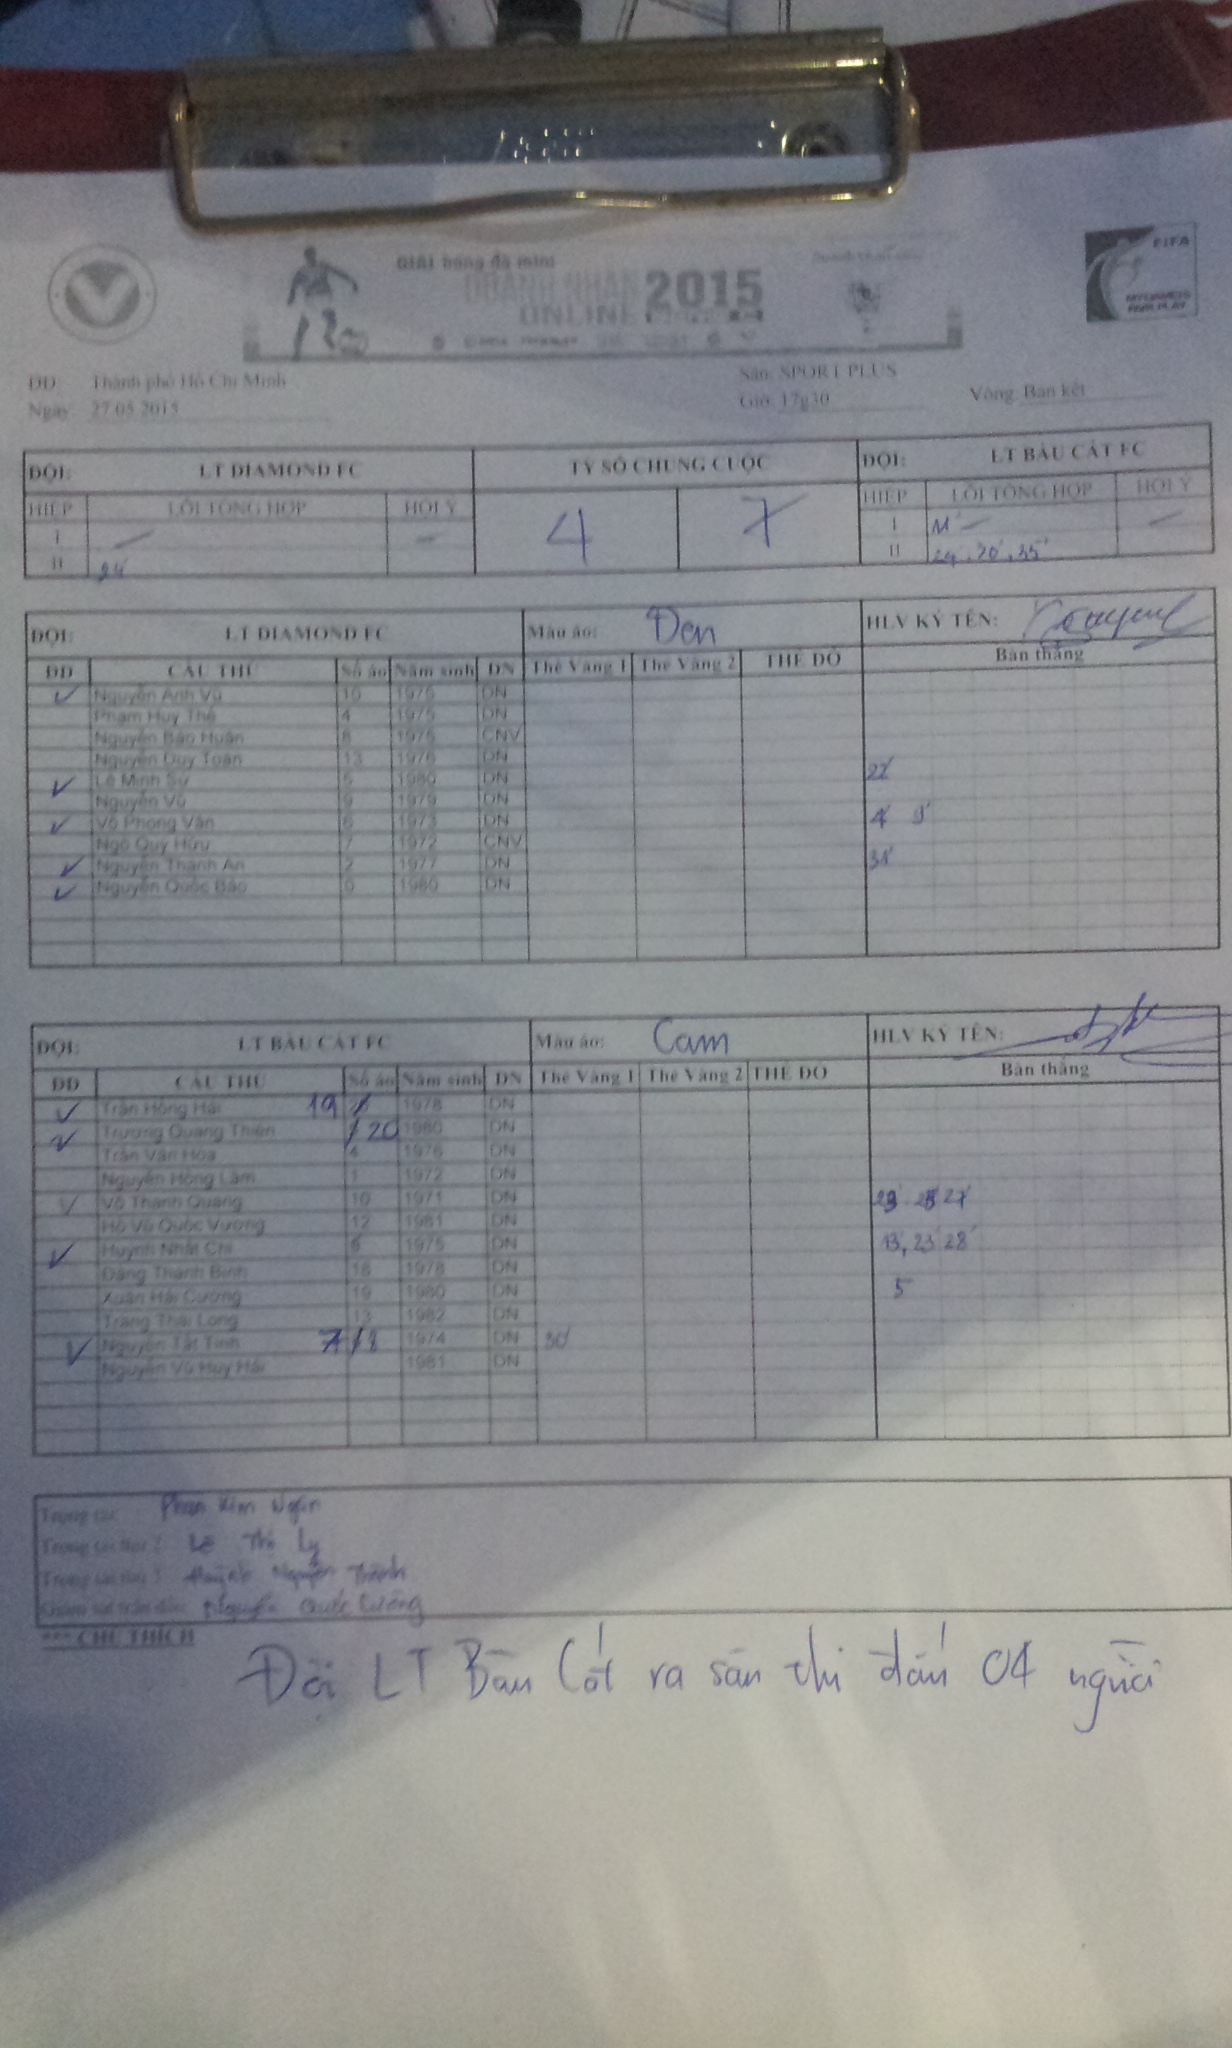 GIẢI bóng đá mini
DOANH NHÂN 2015
ONLINE
FIFA
MY GAME IS
FAIR PLAY
ĐĐ: Thành phố Hồ Chí Minh
Sân: SPORT PLUS
Ngày: 27.05.2015
Giờ: 17g30
Vòng: Bán kết
ĐỘI: LT DIAMOND FC TỶ SỐ CHUNG CUỘC ĐỘI: LT BÀU CÁT FC
HIỆP LỖI TỔNG HỢP HỘI Ý 4 7 HIỆP LỖI TỔNG HỢP HỘI Ý
I — — I —
II 24' II 24, 20', 35'
ĐỘI: LT DIAMOND FC Màu áo: Đen HLV KÝ TÊN:
ĐD CẦU THỦ Số áo Năm sinh DN Thẻ Vàng 1 Thẻ Vàng 2 THẺ ĐỎ Bàn thắng
✓ Nguyễn Anh Vũ 10 1976 DN
Phạm Huy Thế 4 1975 DN
Nguyễn Bảo Huân 8 1975 CNV
Nguyễn Duy Toàn 13 1976 DN
✓ Lê Minh Sự 5 1980 DN 22'
Nguyễn Vũ 9 1979 DN
✓ Võ Phong Vân 6 1973 DN 4'
Ngô Quý Hữu 7 1972 CNV
✓ Nguyễn Thanh An 2 1977 DN 31'
✓ Nguyễn Quốc Bảo 0 1980 DN
ĐỘI: LT BÀU CÁT FC Màu áo: Cam HLV KÝ TÊN:
ĐD CẦU THỦ Số áo Năm sinh DN Thẻ Vàng 1 Thẻ Vàng 2 THẺ ĐỎ Bàn thắng
✓ Trần Hồng Hải 19 1978 DN
✓ Trương Quang Thiện 20 1980 DN
Trần Văn Hòa 4 1976 DN
Nguyễn Hồng Lâm 1 1972 DN
✓ Võ Thanh Quang 10 1971 DN 27'
Hồ Vũ Quốc Vương 12 1981 DN
✓ Huỳnh Nhất Chi 1975 DN 13', 23' 28'
Đặng Thanh Bình 18 1978 DN
Xuân Hải Cường 19 1980 DN 5
Trang Thái Long 13 1982 DN
✓ Nguyễn Tất Tính 7 1974 DN 30'
Nguyễn Vũ Huy Hải 1981 DN
Trọng tài: Phan Kim Ngân
Trọng tài thứ 2: Lê Thị Ly
Trọng tài thứ 3: Huỳnh Nguyễn Thành
Giám sát trận đấu: Nguyễn Quốc Cường
*** GHI THÍCH
Đội LT Bàu Cát ra sân thi đấu 04 người